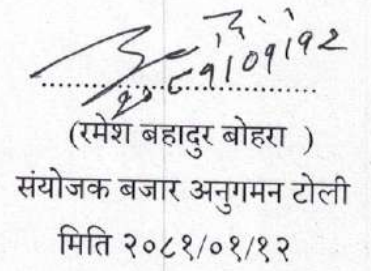 २०८१।०१।१२
(रमेश बहादुर बोहरा )
संयोजक बजार अनुगमन टोली
मिति २०८१/०१/१२